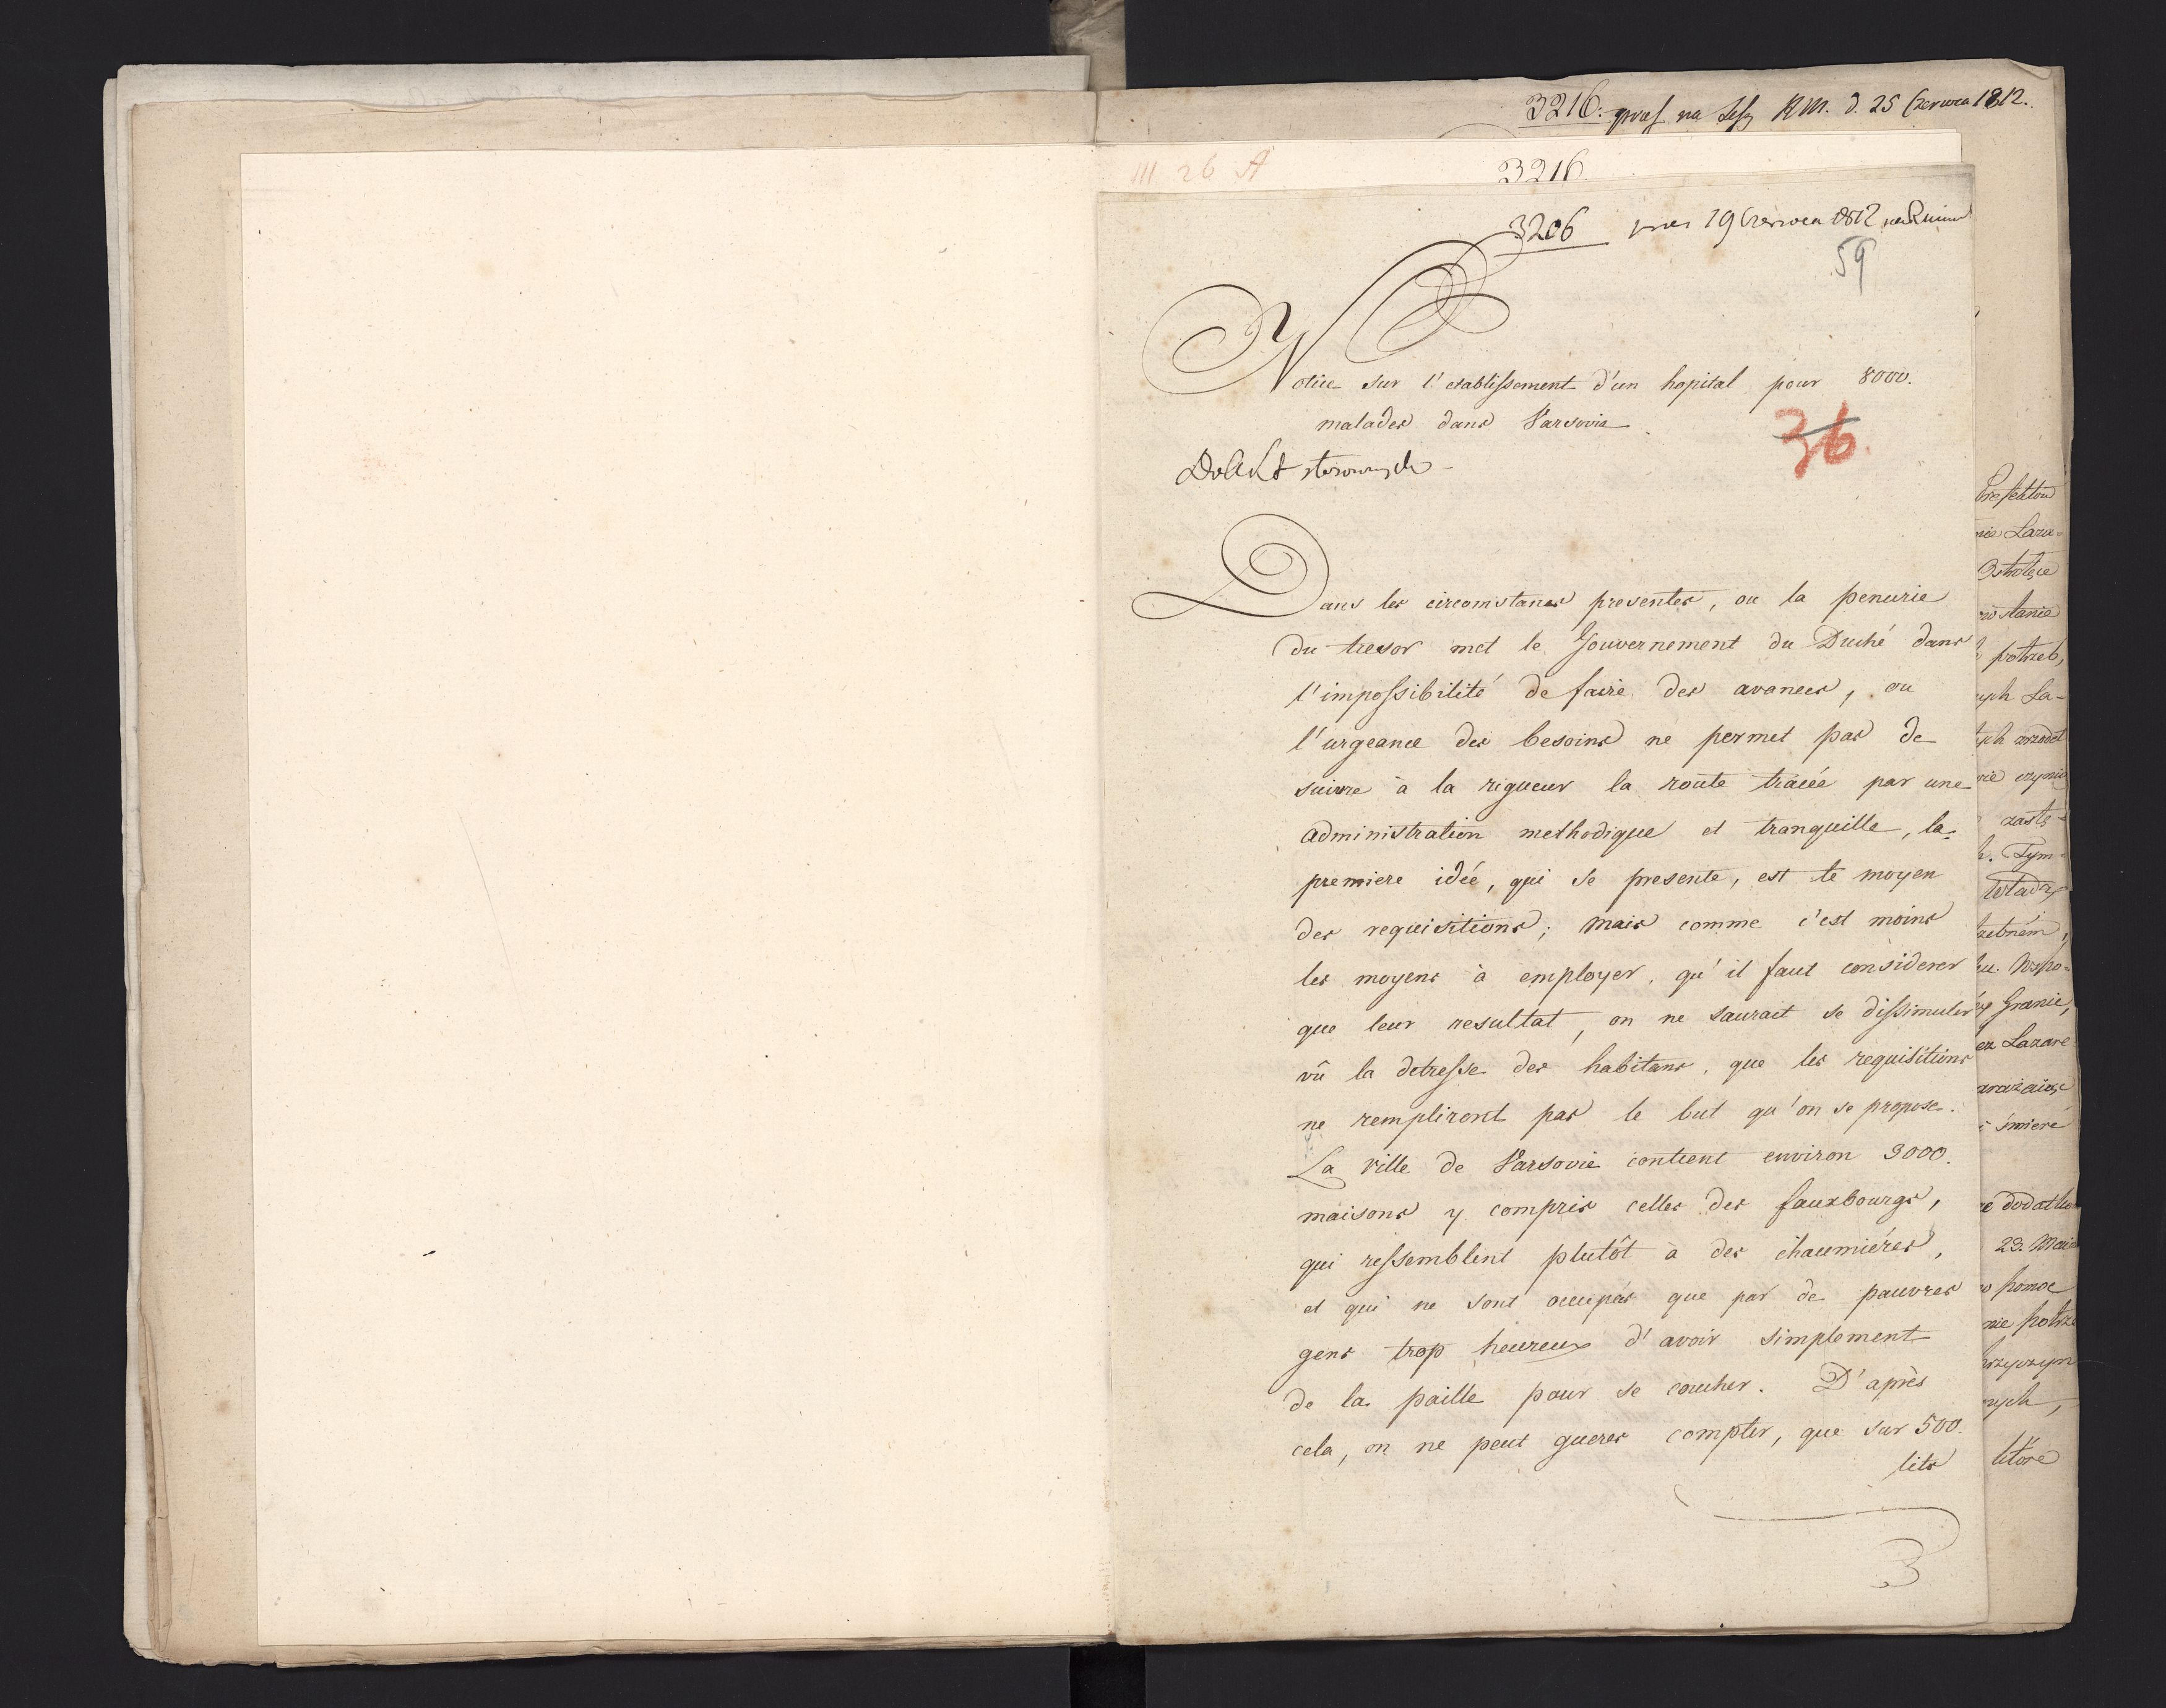 3216. præs na Sess RM. d. 25 Czerwca 1812.
III 26 A
3216.
3206 præs 19 Czerwca 1812
59
Notice sur l'etablissement d'un hopital pour 8000.
malades dans Varsovie.
36.
Do Akt
Dans les circomstances presentes, ou la penurie
du tresor met le Gouvernement du Duché dans
l'impossibilité de faire des avances, ou
l'urgeance des besoins ne permet pas de
suivre à la rigueur la route tracée par une
administration methodique et tranquille, la
premiere idée, qui se presente, est le moyen
des requisitions; mais comme c'est moins
les moyens à employer, qu'il faut considerer
que leur resultat, on ne saurait se dissimuler
vû la detresse des habitans, que les requisitions
ne rempliront pas le but qu'on se propose.
La ville de Varsovie contient environ 3000.
maisons y compris celles des fauxbourgs,
qui ressemblent plutôt à des chaumiéres,
et qui ne sont occupés que par de pauvres
gens trop heureux d'avoir simplement
de la paille pour se coucher. D'après
cela, on ne peut gueres compter, que sur 500.
lits
Prefektow
nie Laza=
Ostrołęce
stanie
potrzeb,
ych La-
tych zrzodeł
nie czyni
zastę=
h. Tym=
Władzy
trzebném,
Wspo=
Granie,
Lazare
zarażaiące
śmierć
dodatku
23. Maia
pomoc
nie potrze
przyczyn
nych,
które